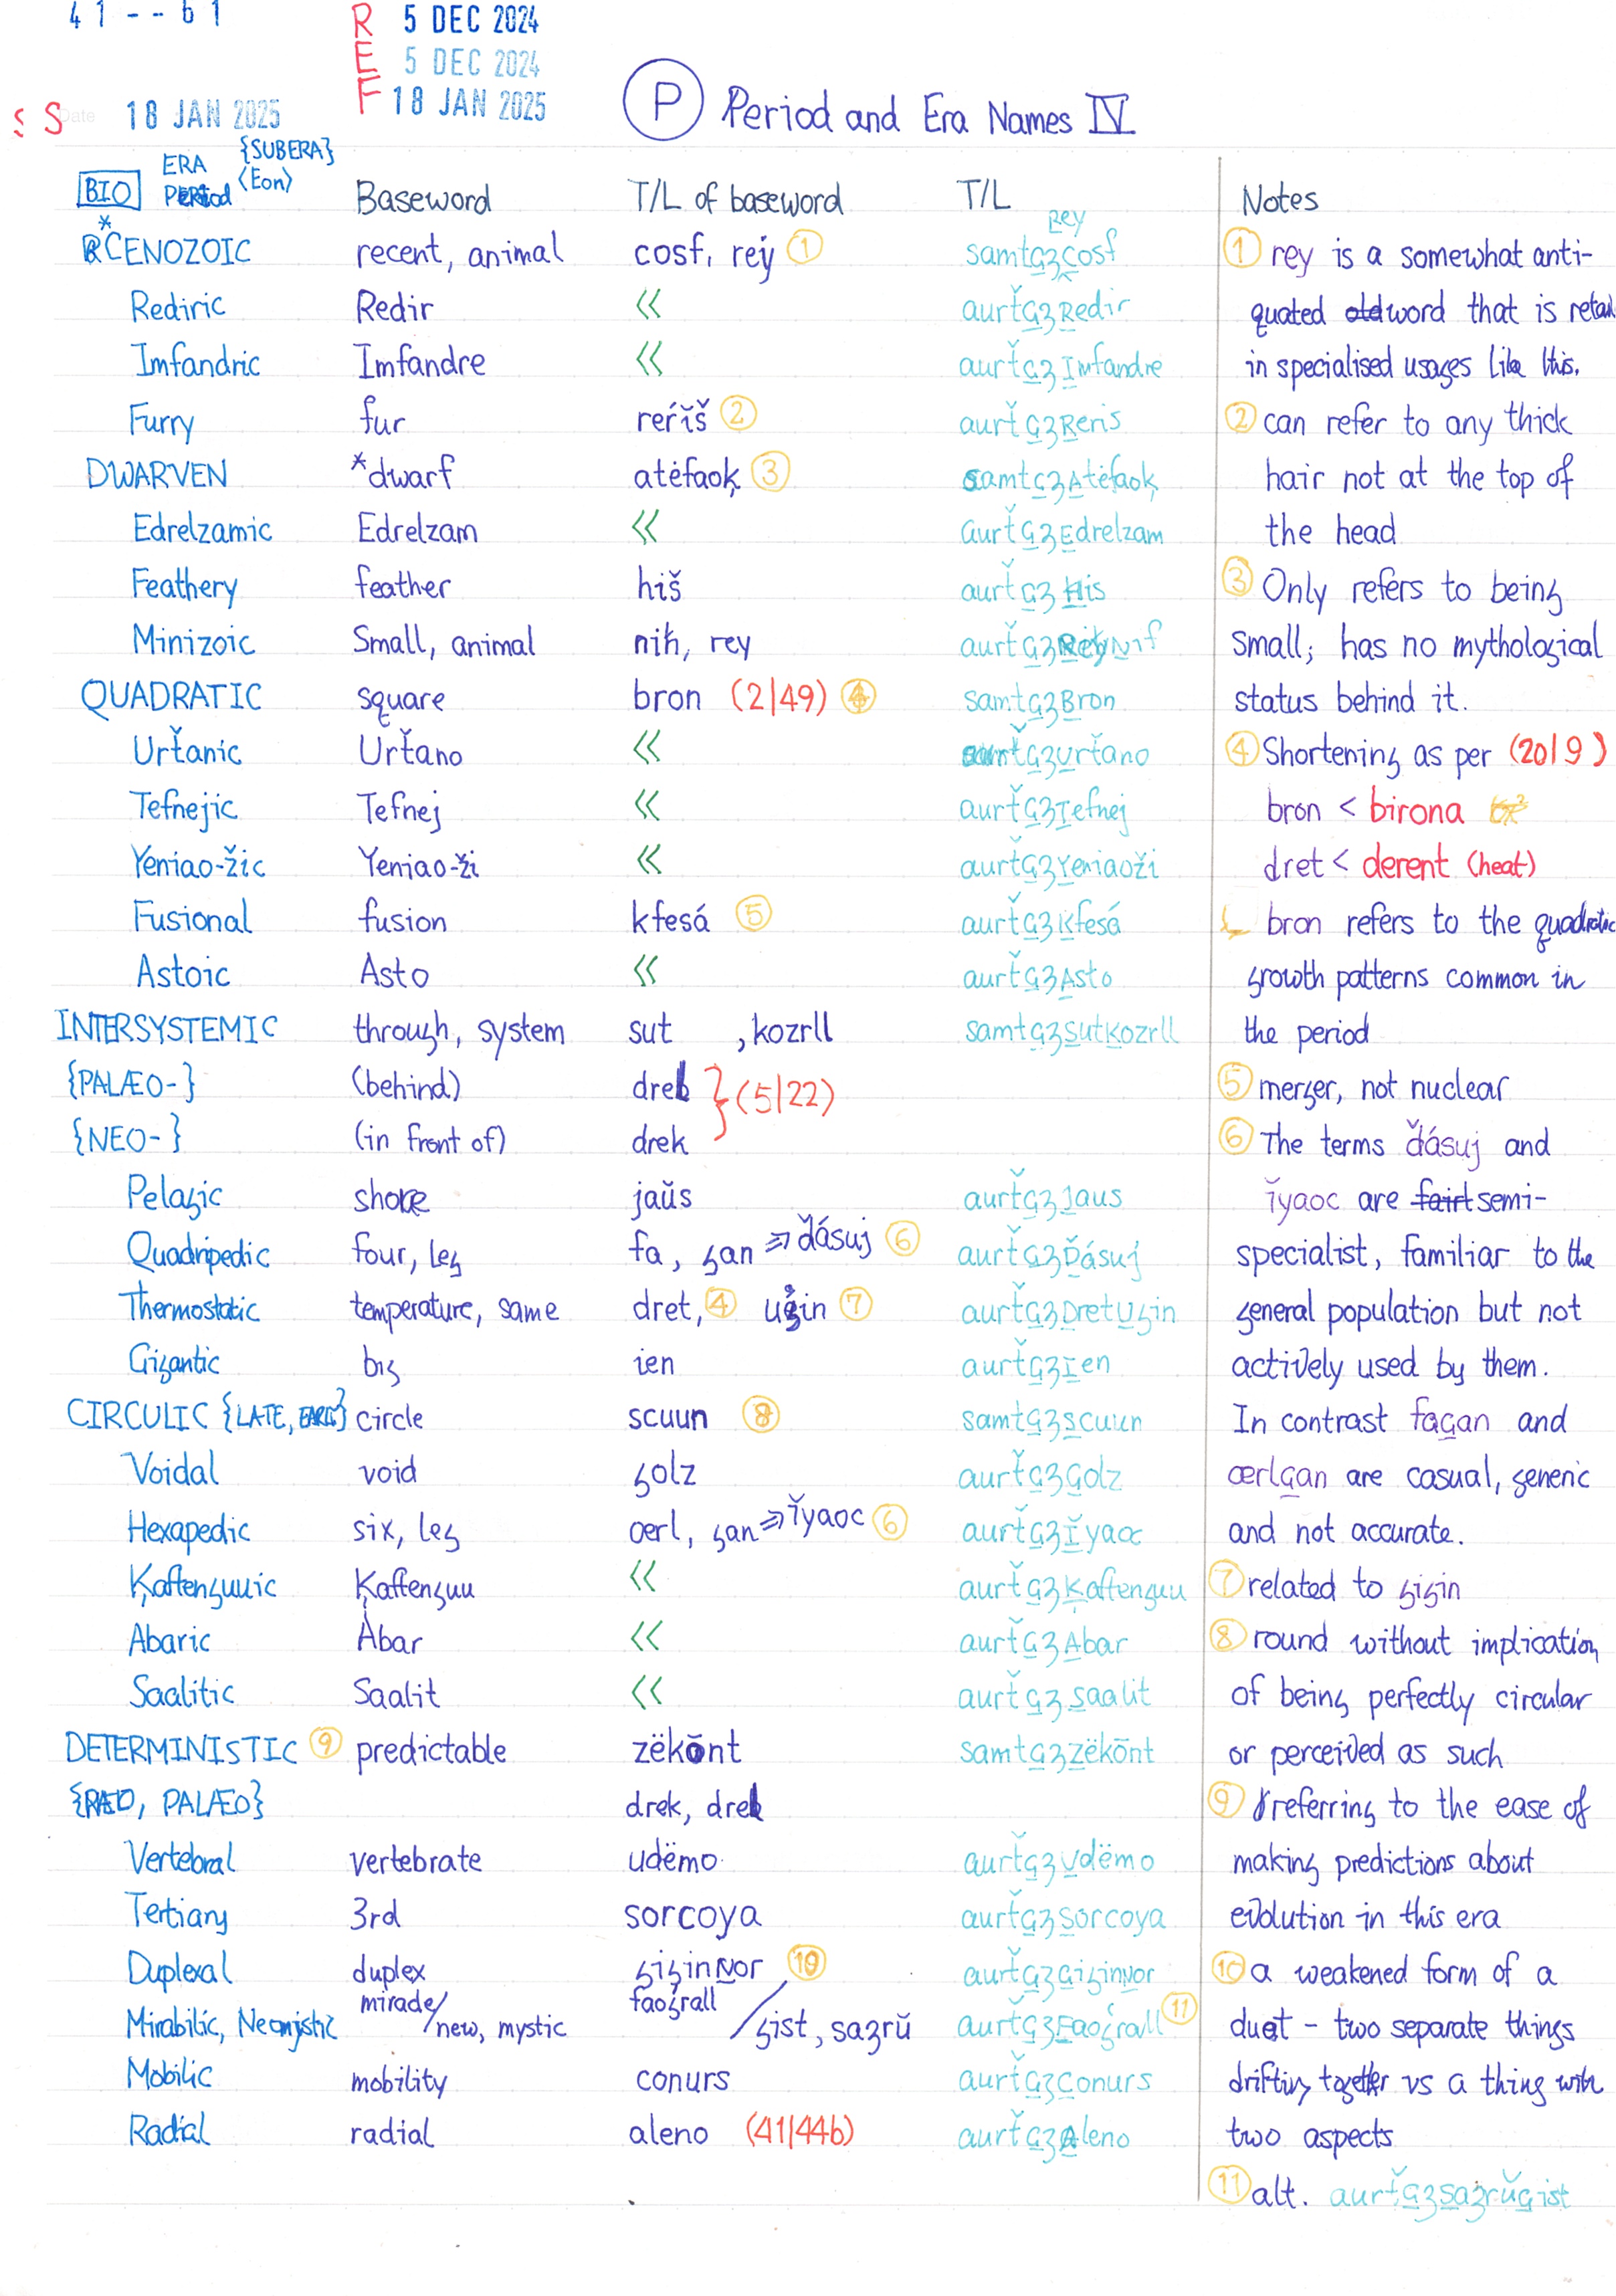 41--61
REF 5 DEC 2024
5 DEC 2024
S S Date 18 JAN 2025 18 JAN 2025 Ⓟ Period and Era Names IV
BIO ERA {SUBERA} Period <Eon> Baseword T/L of baseword T/L Notes
*CENOZOIC recent, animal cosf, rey ① samtgʒReyCosf ① rey is a somewhat anti-
Rediric Redir << aurťgʒRedir quated old word that is retain
Imfandric Imfandre << aurťgʒImfandre in specialised usages like this.
Furry fur reřïš ② aurťgʒReris ② can refer to any thick
DWARVEN *dwarf atėfaoķ ③ samtgʒAtėfaoķ hair not at the top of
Edrelzamic Edrelzam << aurťgʒEdrelzam the head
Feathery feather hiš aurťgʒHis ③ Only refers to being
Minizoic Small, animal nih, rey small; has no mythological
QUADRATIC square bron (2|49) ④ samtgʒBron status behind it.
Urťanic Urťano << aurťgʒUrťano ④ Shortening as per (20|9)
Tefnejic Tefnej << aurťgʒTefnej bron < birona
Yeniao-žic Yeniao-ži << aurťgʒYeniaoži dret < derent (heat)
Fusional fusion kfesá ⑤ aurťgʒKfesá bron refers to the quadratic
Astoic Asto << aurťgʒAsto growth patterns common in
INTERSYSTEMIC through, system sut , kozrll samtgʒSutKozrll the period
{PALÆO-} (behind) dreb } (5|22) ⑤ merger, not nuclear
{NEO-} (in front of) drek ⑥ The terms ďásuj and
Pelagic shore jaŭs aurťgʒJaus ǐyaoc are fairt semi-
Quadripedic four, leg fa, gan ⇒ ďásuj ⑥ aurťgʒĎásuj specialist, familiar to the
Thermostatic temperature, same dret, ④ ugin ⑦ aurťgʒDretUgin general population but not
Gigantic big ien aurťgʒIen actively used by them.
CIRCULIC {LATE, EARLY} circle scuun ⑧ samtgʒScuun In contrast fagan and
Voidal void golz aurťgʒGolz œrlgan are casual, generic
Hexapedic six, leg œrl, gan ⇒ ǐyaoc ⑥ aurťgʒǏyaoc and not accurate.
Ķaftenguuic Ķaftenguu << aurťgʒĶaftenguu ⑦ related to gigin
Abaric Àbar << aurťgʒAbar ⑧ round without implication
Saalitic Saalit << aurťgʒSaalit of being perfectly circular
DETERMINISTIC ⑨ predictable zëkōnt samtgʒZëkōnt or perceived as such
PALÆO} drek, dreb ⑨ referring to the ease of
Vertebral vertebrate udëmo aurťgʒUdëmo making predictions about
Tertiary 3rd sorcoya aurťgʒSorcoya evolution in this era
Duplexal duplex giginnor ⑩ aurťgʒGiginnor ⑩ a weakened form of a
Mirabilic, Neomystic miracle/new, mystic faoġrall/gist, sazrŭ aurťgʒFaoġrall ⑪ duet - two separate things
Mobilic mobility conurs aurťgʒConurs drifting together vs a thing with
Radial radial aleno (41|44b) aurťgʒAleno two aspects
⑪ alt. aurťgʒSazrŭgist